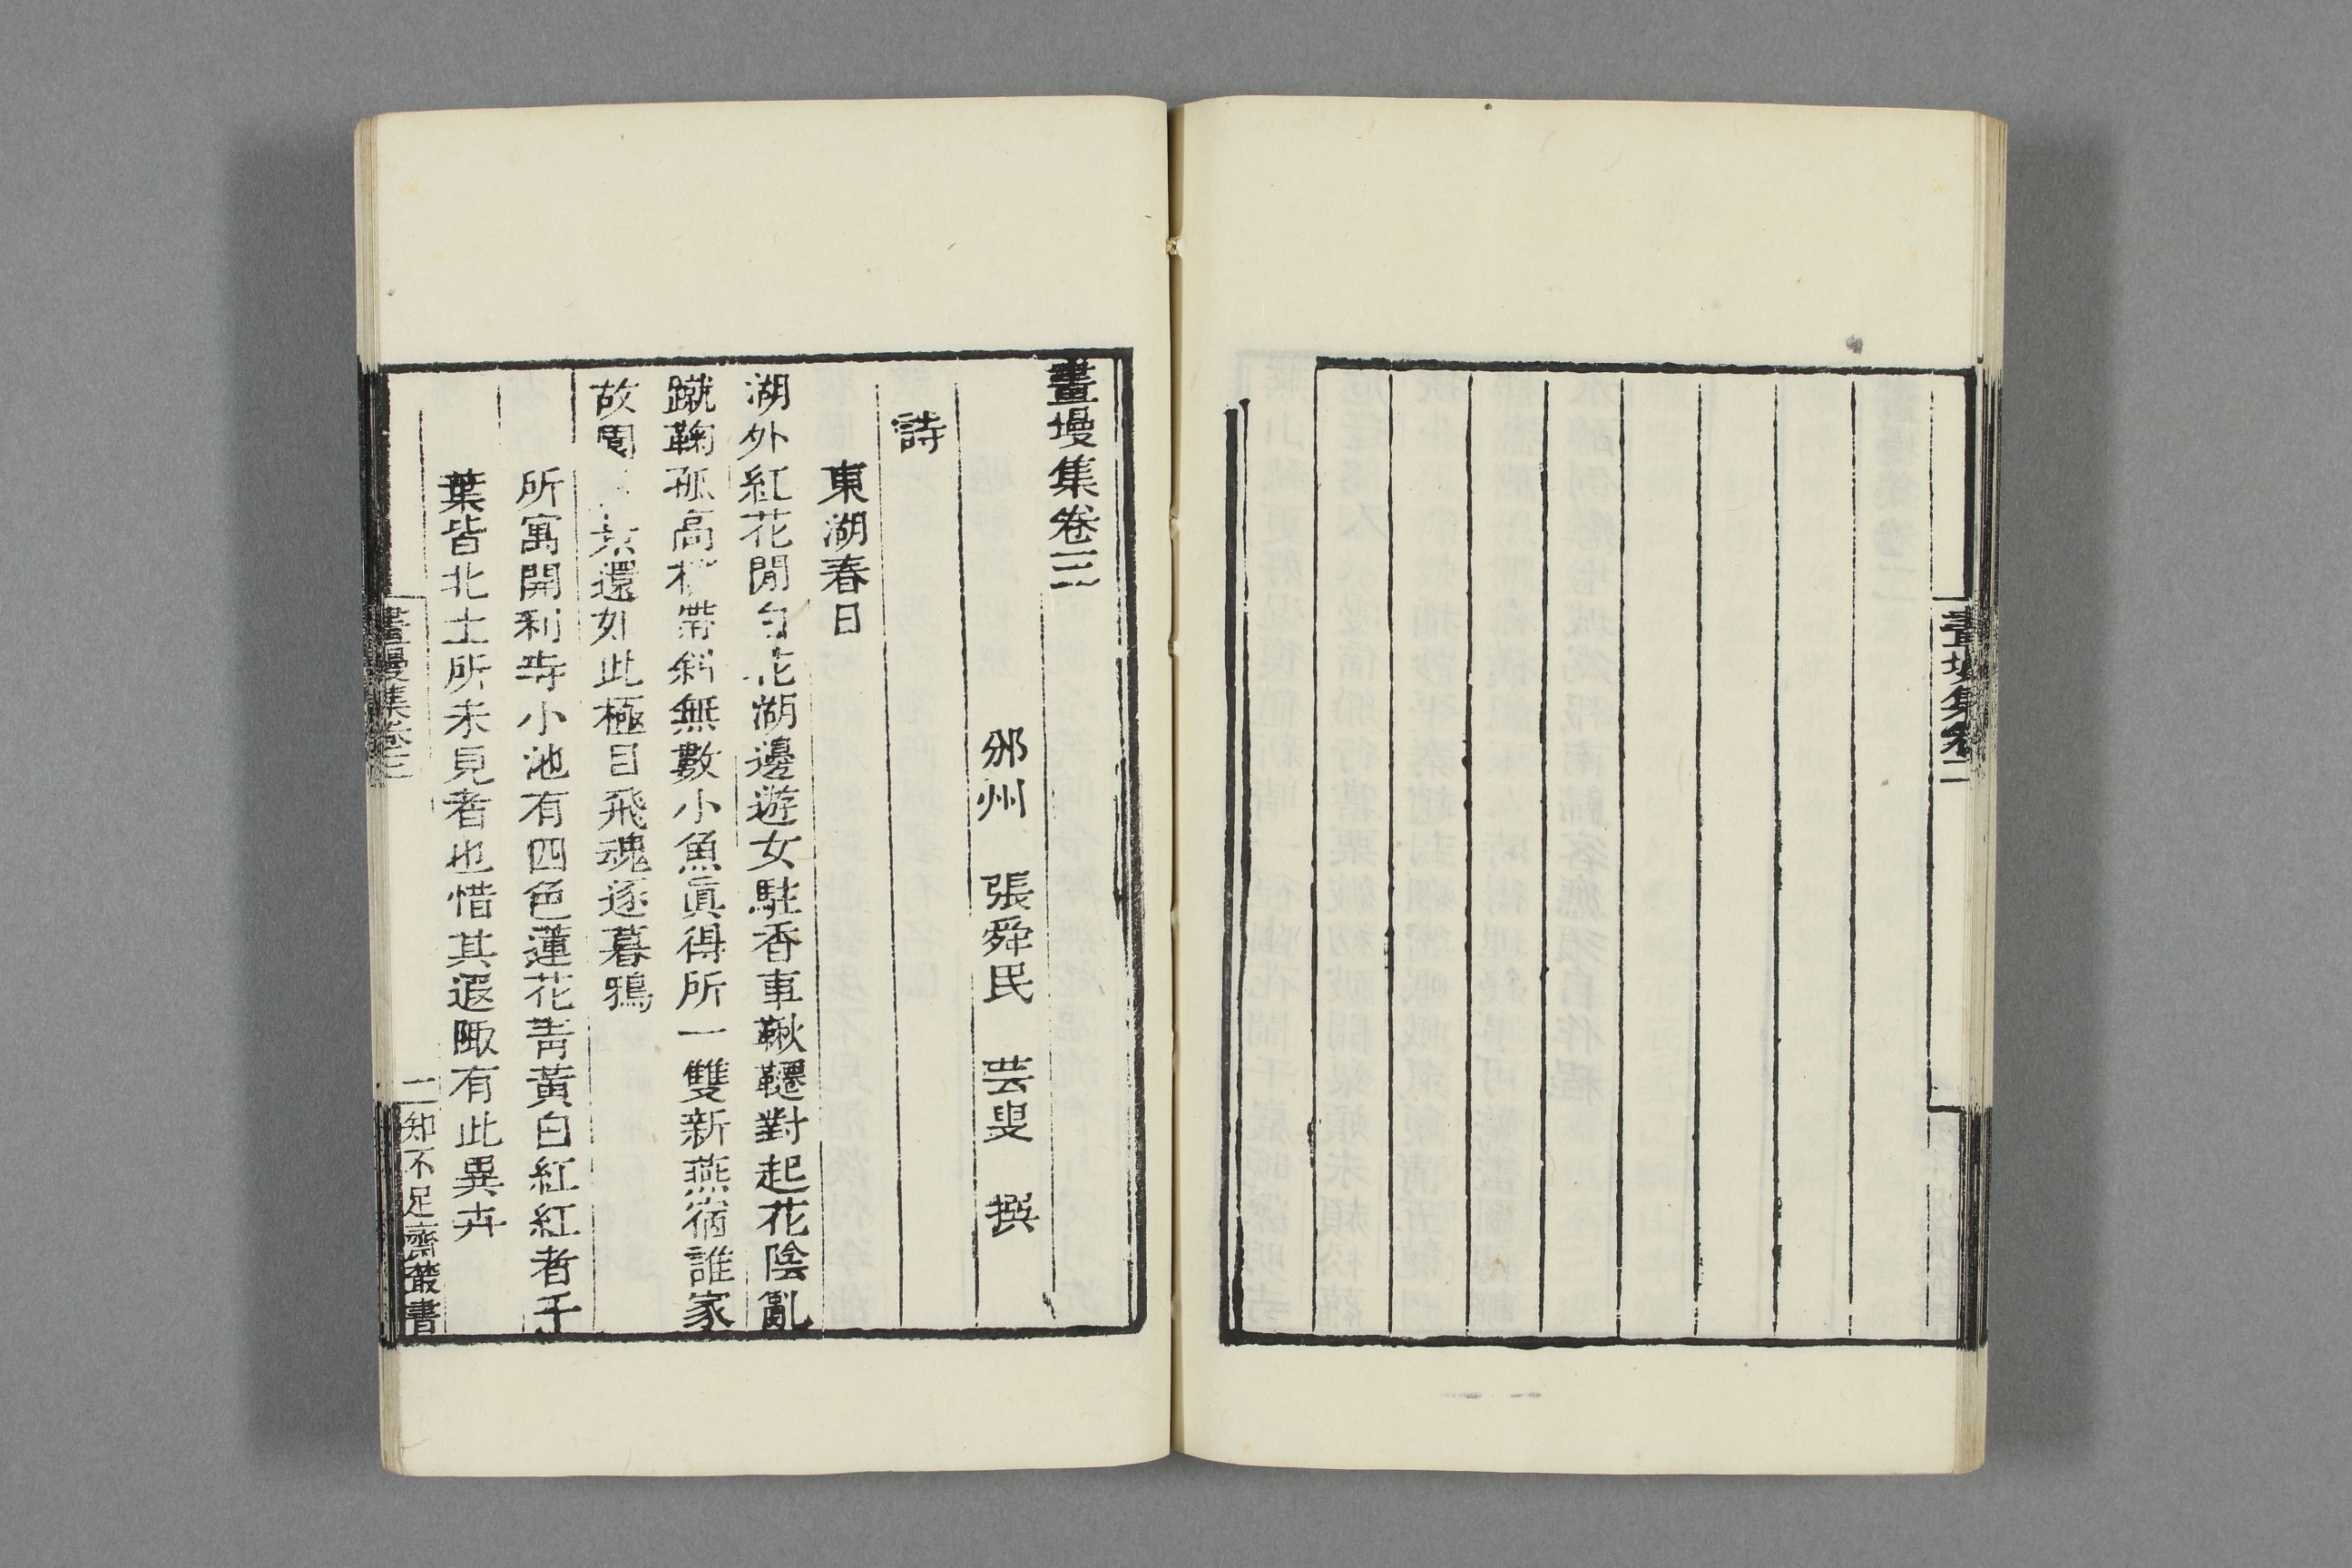 畫墁集卷二
畫墁集卷三
邠州 張舜民 芸叟 撰
詩
東湖春日
湖外紅花間白花湖邊遊女駐香車鞦韆對起花陰亂
蹴鞠孤高柳帶斜無數小魚眞得所一雙新燕宿誰家
故園 景還如此極目飛魂逐暮鴉
所寓開利寺小池有四色蓮花靑黃白紅紅者千
葉皆北土所未見者也惜其遐陬有此異卉
畫墁集卷三
一
知不足齋叢書